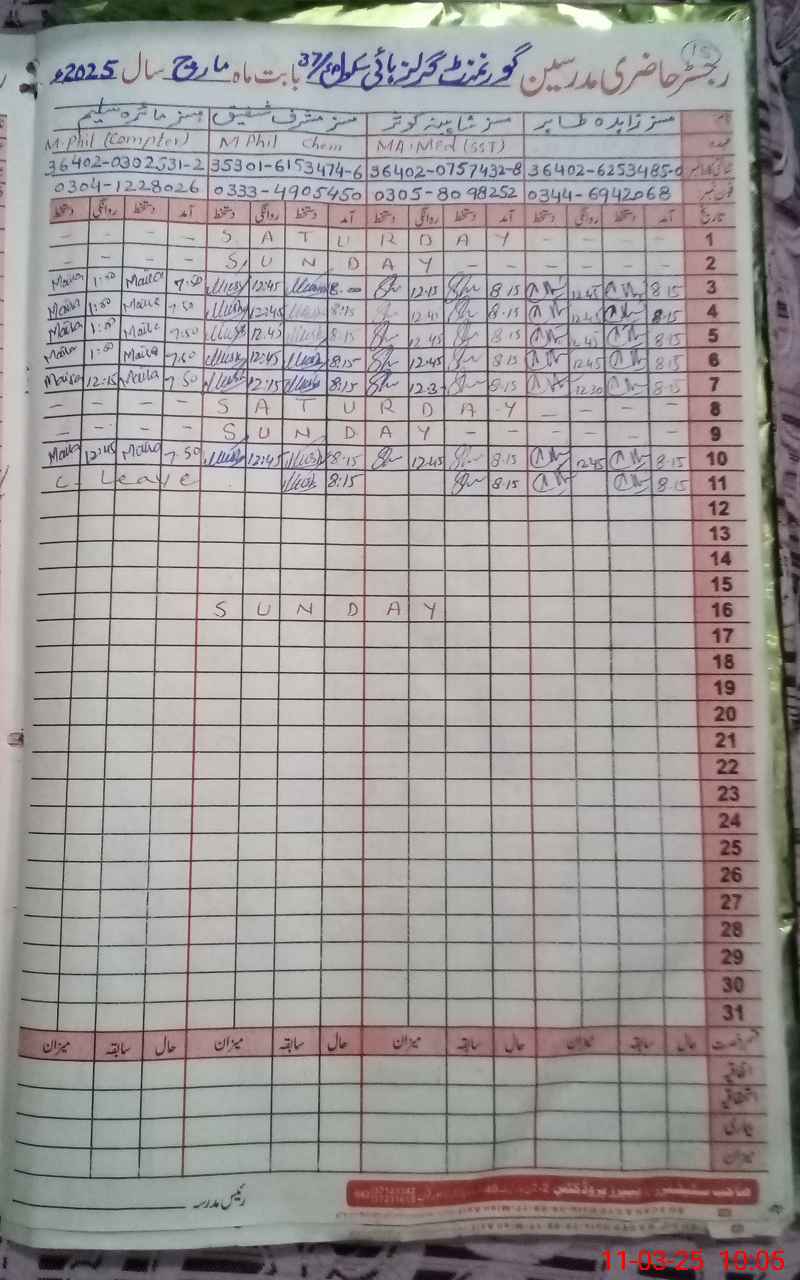 15
رجسٹر حاضری مدرسین گورنمنٹ گرلز ہائی سکول 37/ بابت ماہ مارچ سال 2025ء
نام مسز زاہدہ طاہر مسز شاہینہ کوثر مسز مشرف شفیق مسز مائرہ سلیم
عہدہ MA.Med (SST) M Phil Chem M.Phil (Compter)
36402-6253485-0 36402-0757432-8 35301-6153474-6 36402-0302531-2
فون نمبر 0344-6942068 0305-8098252 0333-4905450 0304-1228026
تاریخ آمد دستخط روانگی دستخط آمد دستخط روانگی دستخط آمد دستخط روانگی دستخط آمد دستخط روانگی دستخط
– – – – S A T U R D A Y – – – – 1
– – – – S U N D A Y – – – – – – 2
Maira 1:00 Maira 7.50 12:45 8:00 12.15 8.15 12.45 8.15 3
Maira 1:00 Maira 7.50 12:45 8:15 12.4 8.15 12.45 8.15 4
Maira 1:00 Maira 7.50 12.45 8:15 12.45 8.15 12.45 8.15 5
Maira 1:00 Maira 7.50 12:45 8:15 12.45 8.15 12.45 8.15 6
Maira 12:15 Maira 7.50 12:15 8:15 12.3 8.15 12.30 8.15 7
– – – – S A T U R D A Y – – – – 8
– – – – S U N D A Y – – – – – – 9
Maira 12:45 Maira 7.50 12:45 8:15 12.45 8.15 12.45 8.15 10
C. Leave 8:15 8.15 8.15 11
12
13
14
15
S U N D A Y 16
17
18
19
20
21
22
23
24
25
26
27
28
29
30
31
حال سابقہ میزان حال سابقہ میزان حال سابقہ میزان حال سابقہ میزان
اتفاقیہ
استحقاقیہ
بیماری
میزان
رئیس مدرسہ
11-03-25 10:05